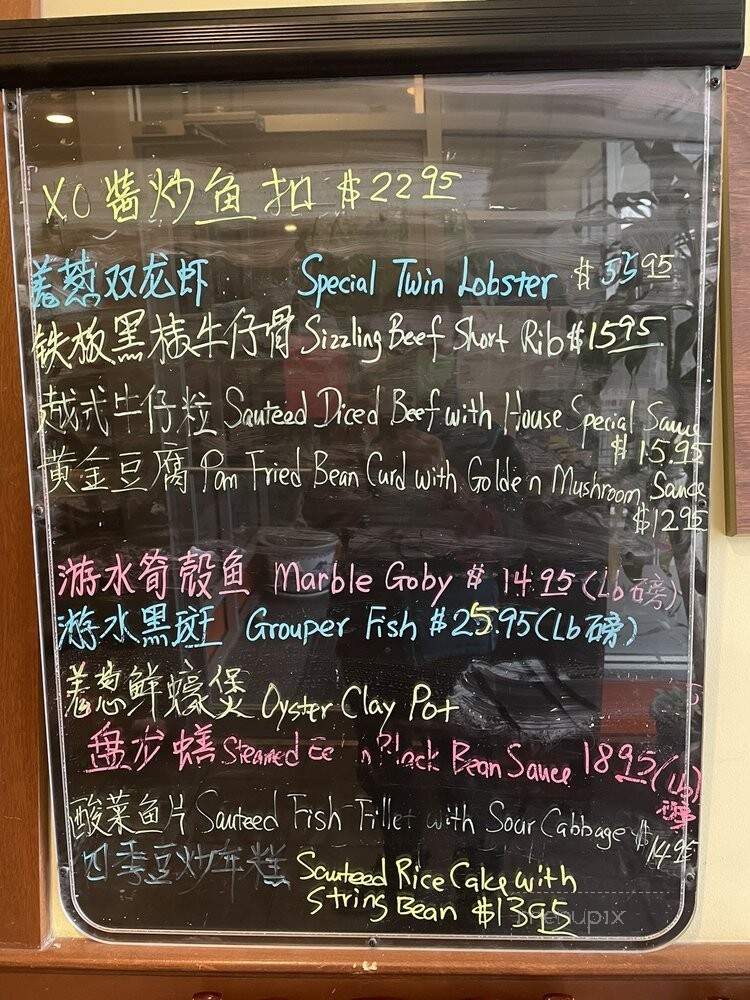 XO醬炒鱼扣 $22.95
姜葱双龙虾 Special Twin Lobster $ 55.95
铁板黑椒牛仔骨 Sizzling Beef Short Rib $15.95
越式牛仔粒 Sauteed Diced Beef with House Special Sauce
$15.95
黄金豆腐 Pan Fried Bean Curd with Golden Mushroom Sauce
$12.95
游水筍殼鱼 Marble Goby $ 14.95 (Lb 磅)
游水黑斑 Grouper Fish $25.95 (Lb 磅)
姜葱鲜蠔煲 Oyster Clay Pot
盘龙 Steamed Black Bean Sauce 18.95 (Lb)
磅
酸菜鱼片 Sauteed Fish Fillet with Sour Cabbage $
14.95
四季豆炒年糕 Sauteed Rice Cake with
String Bean $13.95
menupix